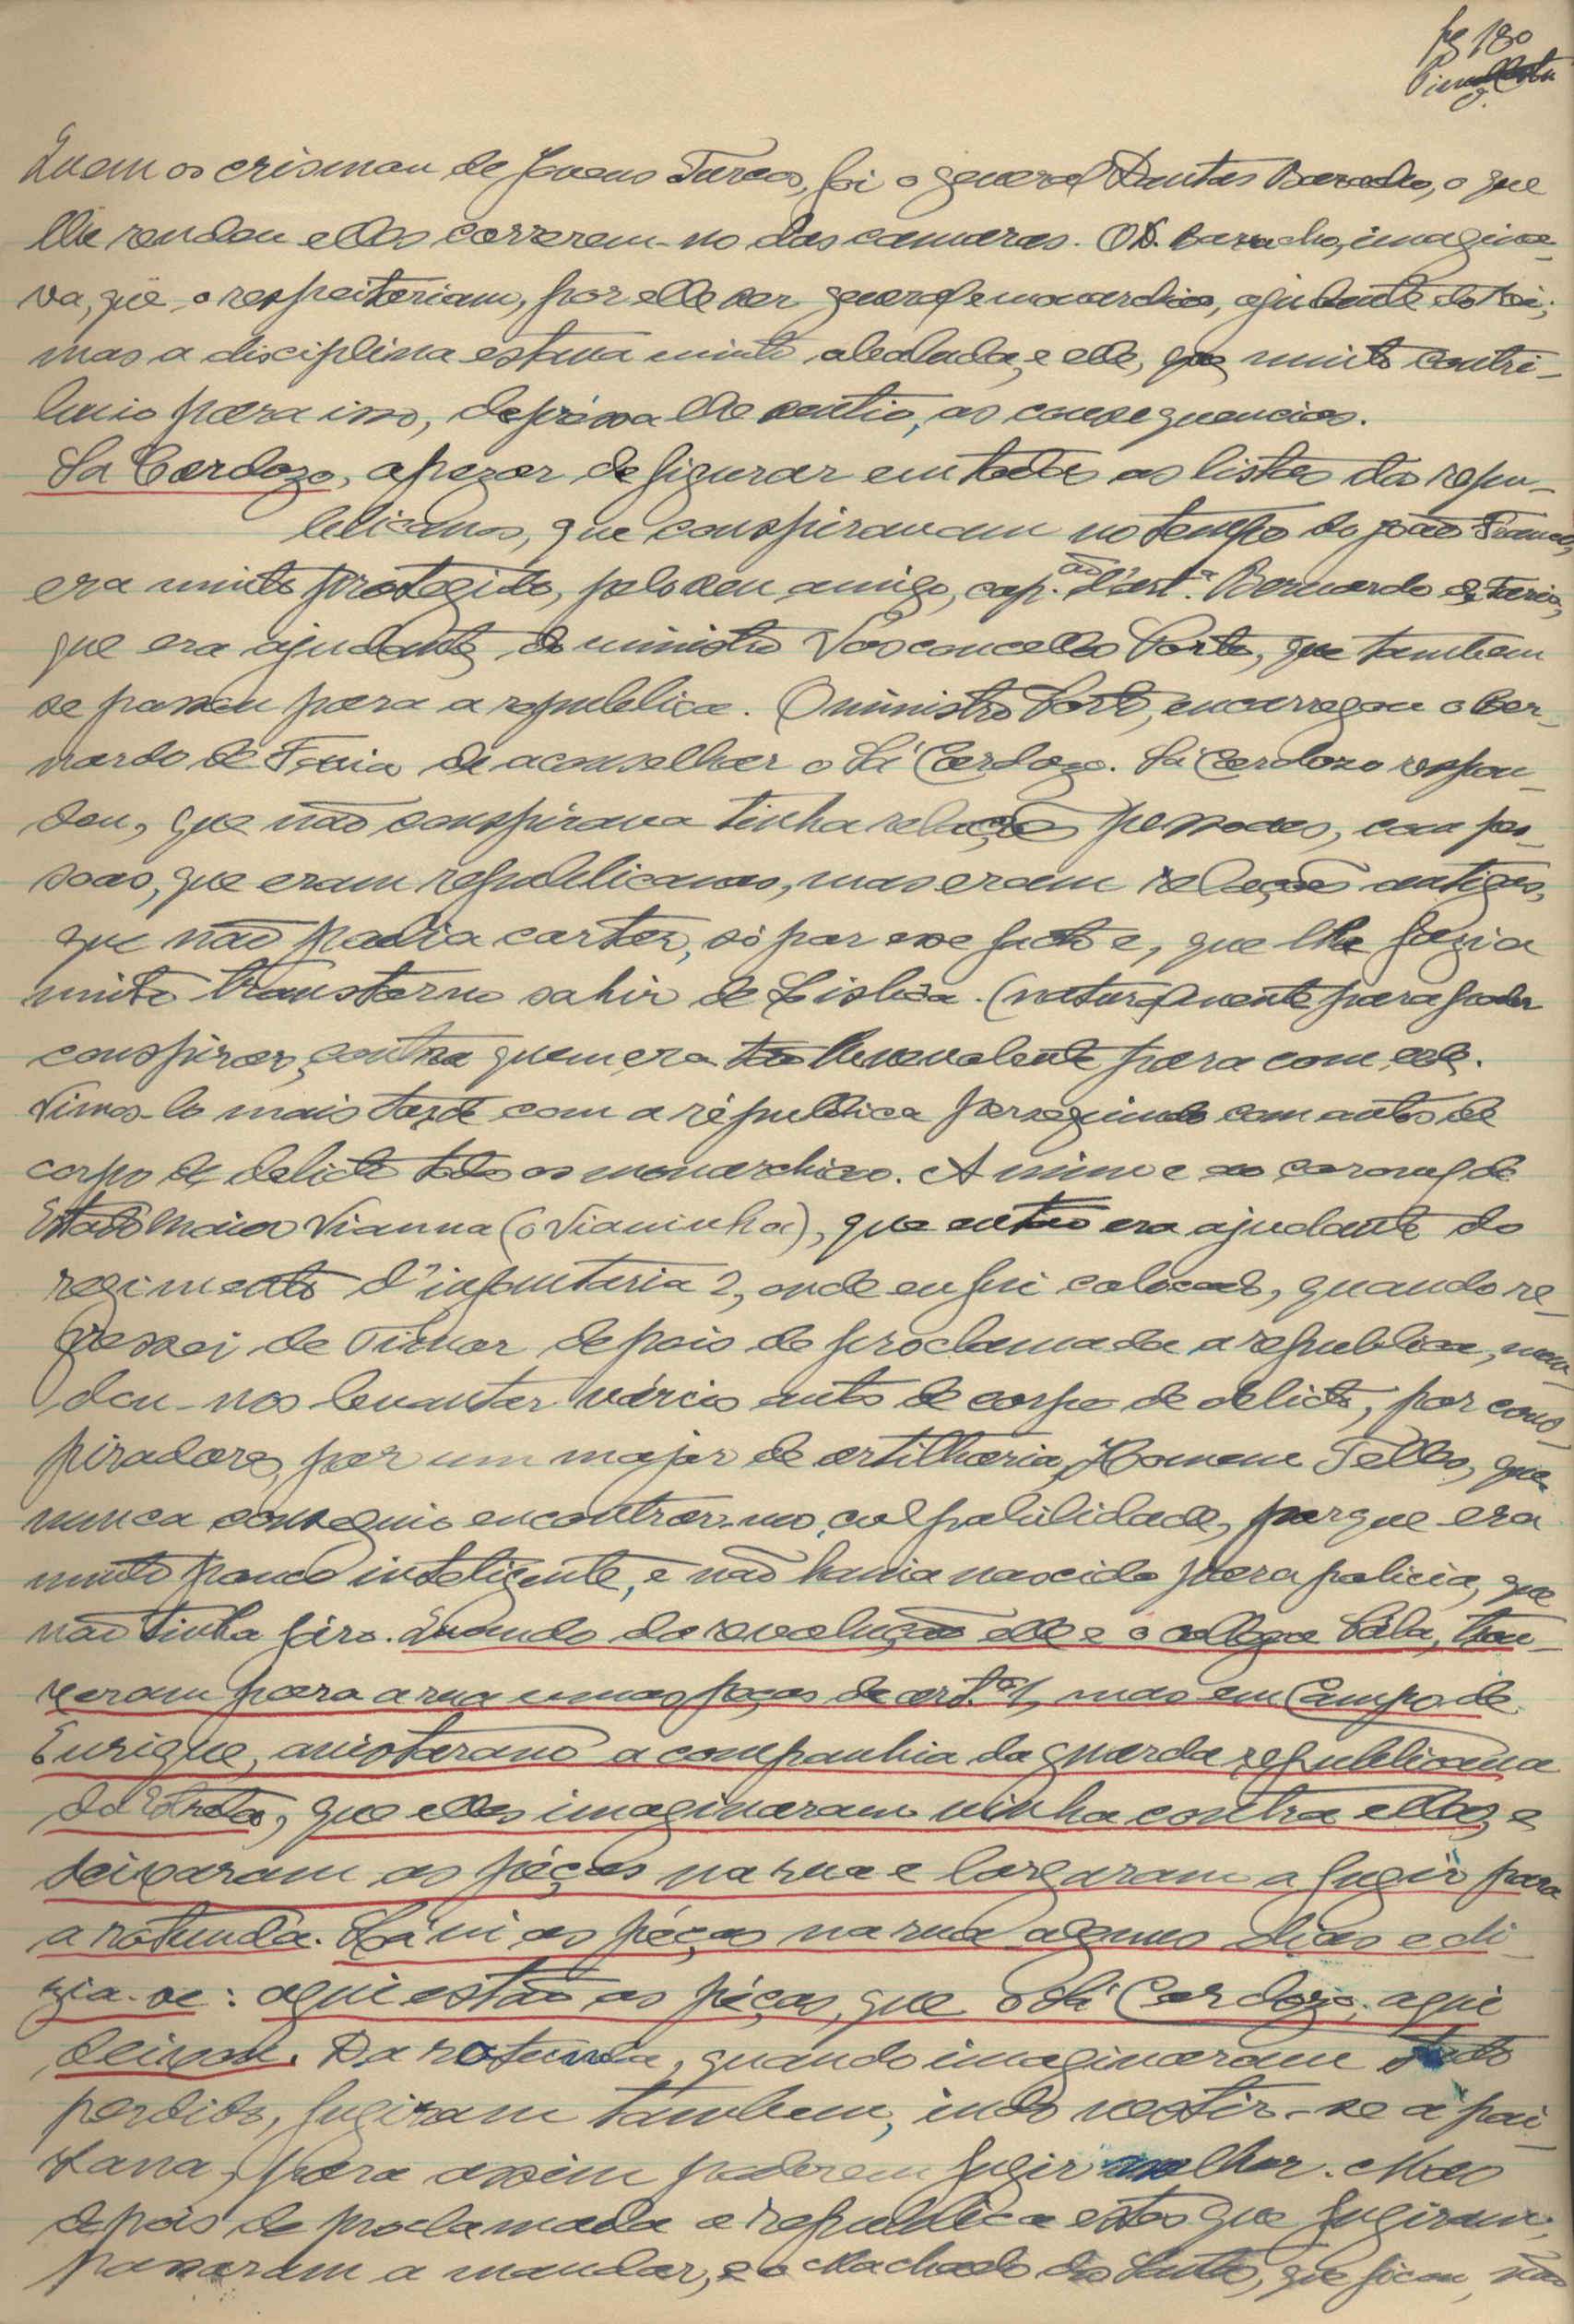 pg 180
Quem os crismou de Jovens Turcos, foi o general Dantas Baracho, o que
lhe rendeu elles correrem-no das camaras. O D. Baracho, imagina-
va, que o respeitariam, por elle ser general e monarchico, ajudante do Rei;
mas a disciplina estava muito abalada, e elle, que muito contri-
buio para isso, depressa lhe sentio, as consequencias.
Sá Cardozo, apezar de figurar em todas as listas dos repu-
blicanos, que conspiravam no tempo do João Franco,
era muito protegido, pelo seu amigo, cap.ão d'art.ª Bernardo de Faria,
que era ajudante do ministro Vasconcellos Porto, que tambem
se passou para a republica. O ministro Porto, encarregou o Ber-
nardo de Faria de aconselhar o Sá Cardozo. Sá Cardozo respon-
deu, que não conspirava tinha relações pessoaes, com pes-
soas, que eram republicanas, mas eram relações antigas,
que não podia cortar, só por esse facto e, que lhe fazia
muito transtorno sahir de Lisboa. (naturalmente para poder
conspirar, contra quem era tão benevolente para com elle.
Vimos-lo mais tarde com a républica perseguindo com autos de
corpo de delicto todos os monarchicos. A mim e ao coronel de
Estado Maior Vianna (o Vianinha), que então era ajudante do
regimento d'infantaria 2, onde eu fui colocado, quando re-
gressei de Timor depois de proclamada a republica, man-
dou-nos levantar vários autos de corpo de delicto, por cons-
piradores, por um major de artilharia, Homem Telles, que
nunca conseguio encontrar-nos culpabilidade, porque era
muito pouco inteligente, e não havia nascido para policia, que
não tinha fáro. Quando da revolução elle e o collega Pála, trou-
xeram para a rua umas peças de art.ª 1, mas em Campo de
Eurique, avistaram a companhia da guarda republicana
da Estrela, que elles imaginaram vinha contra elles, e
deixaram as péças na rua e largaram a fugir para
a rotunda. Lá vi as péças na rua alguns dias e di-
zia-se: aqui estão as péças, que o Sá Cardozo, aqui
deixou. Da rotunda, quando imaginaram tudo
perdido, fugiram tambem, indo vestir-se á pai-
sana, para assim poderem fugir melhor. Mas
depois de proclamada a republica estes que fugiram,
passaram a mandar, e o Machado dos Santos, que ficou, não